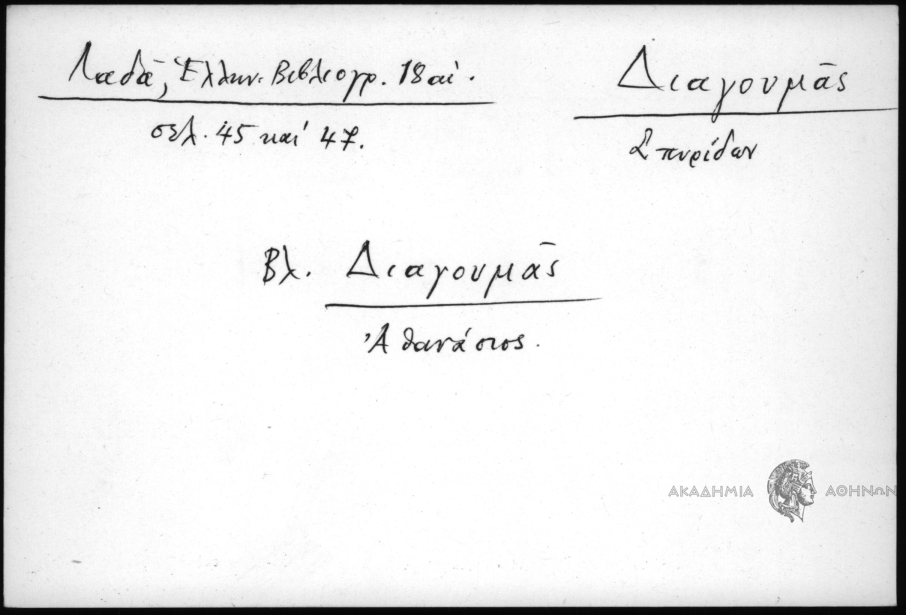 Λαδᾶ, Ἑλλην. Βιβλιογρ. 18 αἰ.
σελ. 45 καὶ 47.
Διαγουμᾶς
Σπυρίδων
Βλ. Διαγουμᾶς
Ἀθανάσιος.
ΑΚΑΔΗΜΙΑ ΑΘΗΝΩΝ